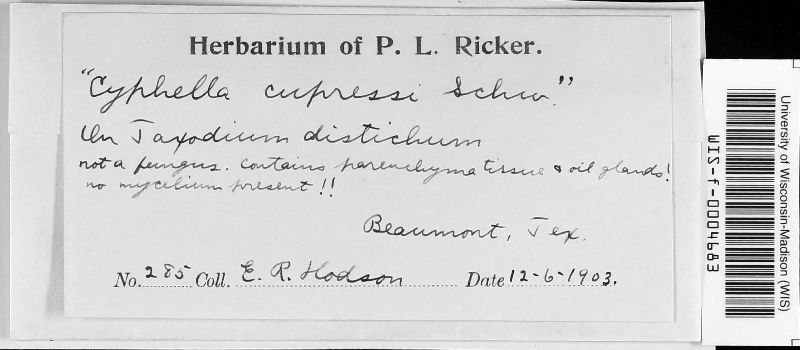 Herbarium of P. L. Ricker.
"Cyphella cupressi Schw."
On Taxodium distichum
not a fungus. Contains parenchyma tissue & oil glands!
no mycelium present!!
Beaumont, Tex.
No. 285 Coll. E. R. Hodson Date 12-6-1903.
University of Wisconsin-Madison (WIS)
WIS-f-0004683